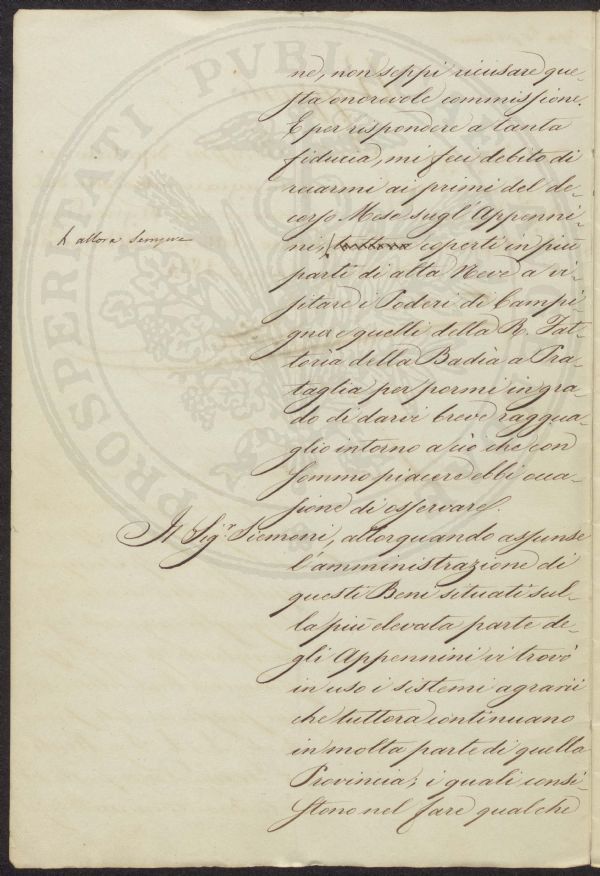 ne, non seppi ricusare que-
sta onorevole commissione.
E per rispondere a tanta
fiducia, mi feci debito di
recarmi ai primi del de-
corso Mese sugl'Appenni-
ni, tuttora coperti in più
allora sempre
parti di alta Neve a vi-
sitare i Poderi di Campi-
gna e quelli della R. Fat-
toria della Badia a Pra-
taglia per pormi in gra-
do di darvi breve raggua-
glio intorno a ciò che con
sommo piacere ebbi occa-
sione di osservare.
Il Sig.r Siemoni, allorquando assunse
l'amministrazione di
questi Beni situati sul-
la più elevata parte de-
gli Appennini vi trovò
in uso i sistemi agrarii
che tuttora continuano
in molta parte di quella
Provincia; i quali consi-
stono nel fare qualche
PROSPERITATI PVBLICAE